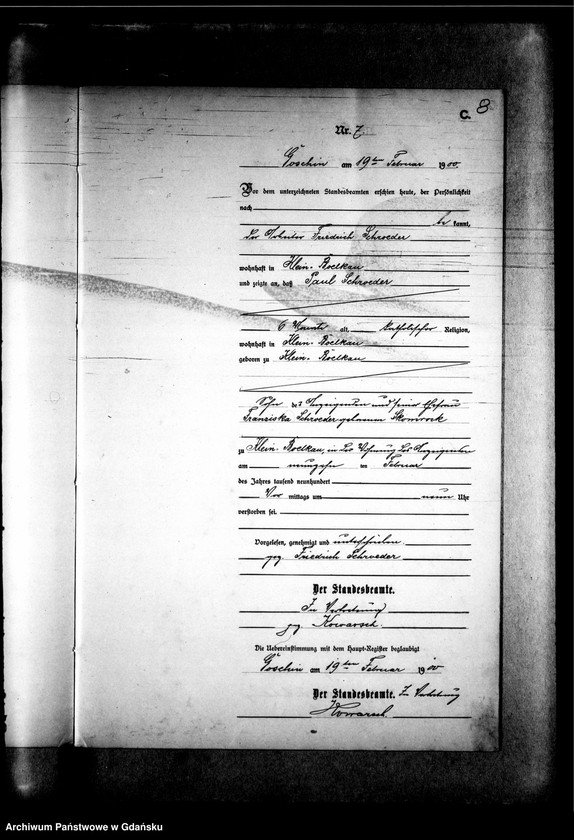 C. 8
Nr. 7
Goschin am 19ten Februar 1900.
Vor dem unterzeichneten Standesbeamten erschien heute, der Persönlichkeit
nach
be kannt,
der Friedrich Schroeder
wohnhaft in Klein-Roelkau
und zeigte an, daß Paul Schroeder
6 Monate alt, katholischer Religion,
wohnhaft in Klein-Roelkau
geboren zu Klein-Roelkau
Sohn des Anzeigenden und seiner Ehefrau
Franziska Schroeder geborenen
zu Klein Roelkau, in der Wohnung des Anzeigenden
am neunzehn ten Februar
des Jahres tausend neunhundert
Vor mittags um neun Uhr
verstorben sei.
Vorgelesen, genehmigt und unterschrieben
gez. Friedrich Schroeder
Der Standesbeamte.
In Vertretung
gez. Kowarsch.
Die Uebereinstimmung mit dem Haupt-Register beglaubigt
Goschin am 19ten Februar 1900
Der Standesbeamte. In Vertretung
Kowarsch.
Archiwum Państwowe w Gdańsku